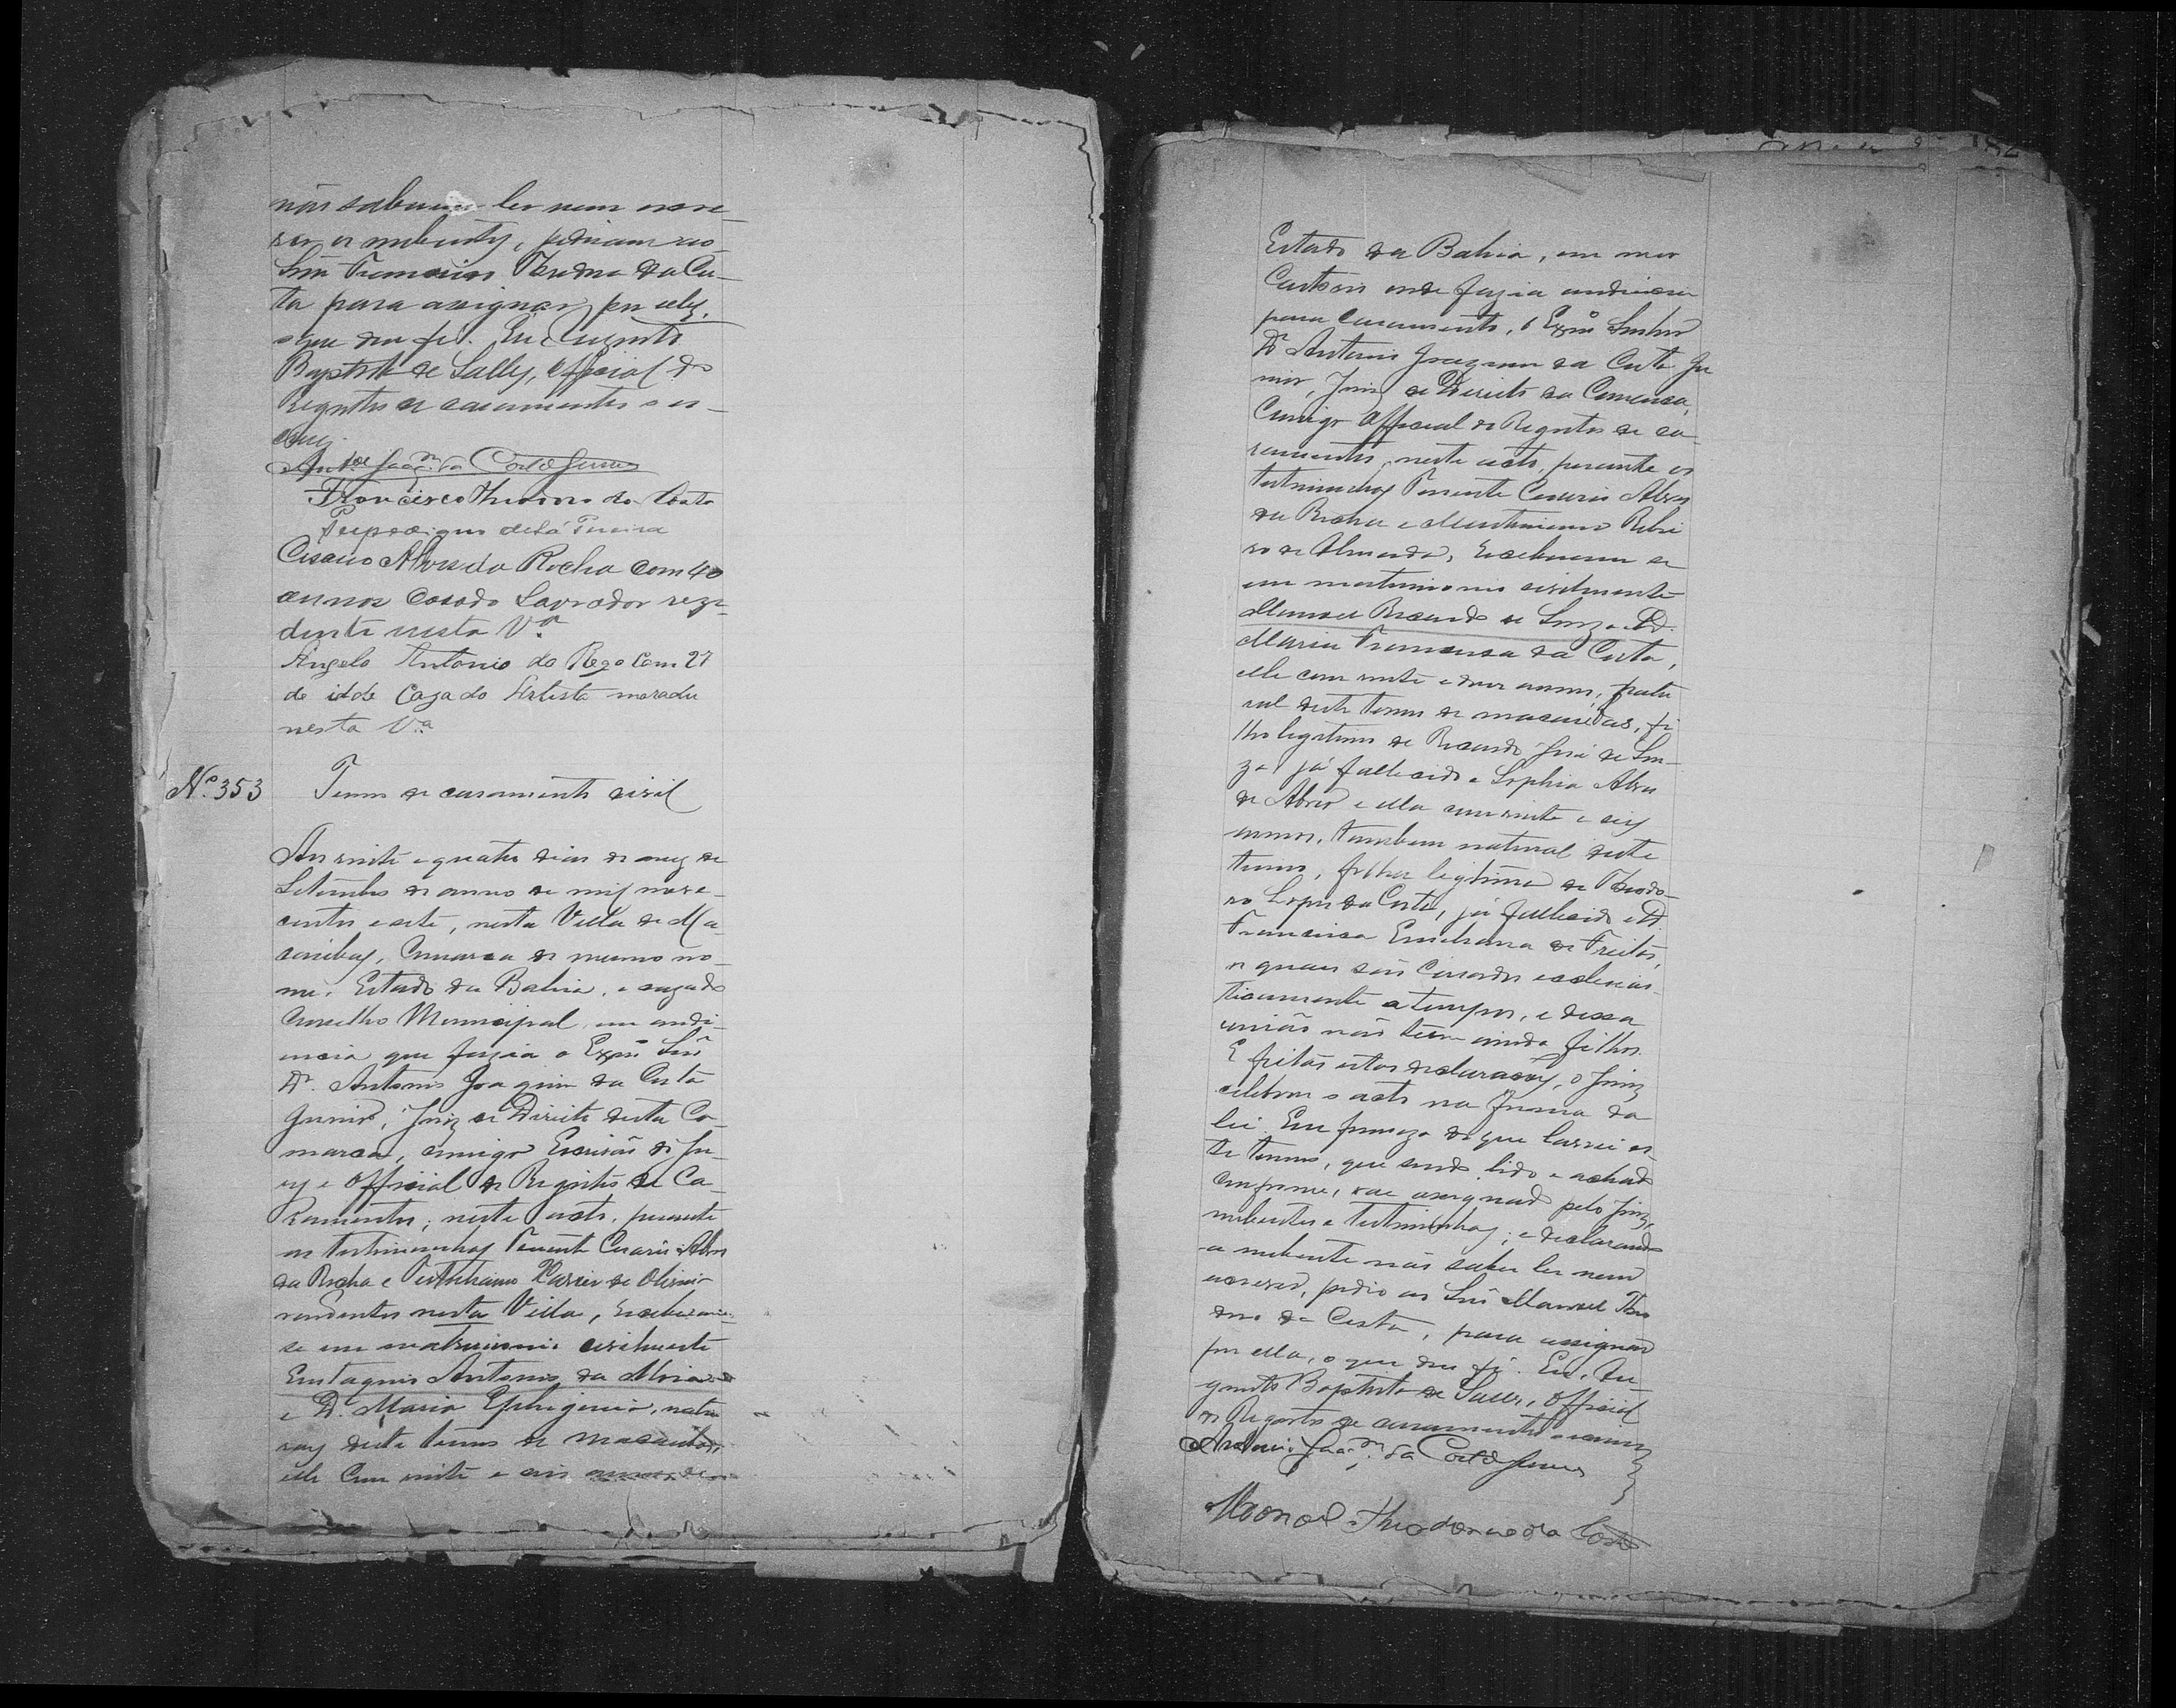 não saberem ler nem escre-
ver os nubentes, pediram ao
Snr Francisco Theodoro da Cos-
ta para assignar por elles,
o que dou fé. Eu, Augusto
Baptista de Salles, Official do
Registro de casamentos o es-
crevy.
Antº Joaqm. da Costa Junior
Francisco Theodoro da Costa
de Sá Pereira
Cesario Alves da Rocha com 40
annos Casado Lavrador rezi
dente nesta Vª
Angelo Antonio do Rego com 27
de idde Cazado Artista morador
nesta Vª
Nº 353 Termo de casamento civil
Aos vinte e quatro dias do mez de
Setembro do anno de mil nove-
centos e sete, nesta Villa de Ma-
caubas, Comarca do mesmo no-
me, Estado da Bahia, e caza do
Conselho Municipal, em audi-
encia que fazia o Exmº Snr
Dr. Antonio Joaquim da Costa
Junior, Juiz de Direito desta Co-
marca, comigo Escrivão do Ju-
ry e Official do Registro de Ca-
samentos, neste acto, perante
as testimunhas Tenente Cesario Alves
da Rocha e Xavier de Oliveira
residentes nesta Villa, receberam-
se em matrimonio civilmente
Eustaquio Antonio da
e D. Maria Ephigenia, natu
raes deste termo de Macaubas,
elle com vinte e seis annos de
Estado da Bahia, em meo
Cartorio onde fazia audiencia
para casamento, o Exmº Senhor
Dr Antonio Joaquim da Costa Ju
nior, Juiz de Direito da Comarca,
Comigo Official do Registro de ca-
samentos, neste acto, perante as
testimunhas Tenente Cesario Alves
da Rocha e Ribei
ro de Almeida, receberam se
em matrimonio civilmente
Manoel Ricardo de Souza e D.
Maria Francisca da Costa,
elle com vinte e dois annos, natu
ral deste termo de macaubas, fi
lho legitimo de Ricardo José de Sou-
za já fallecido e Sophia Alves
de Abreo e ella com vinte e seis
annos, tambem natural deste
termo, filha legitima de Theodo-
ro Lopes da Costa, já fallecido e D.
Francisca Emiliana de Freitas,
os quaes são casados ecclesias-
ticamente a tempos, e dessa
união não têem ainda filhos.
E feitas estas declarações, o Juiz
celebrou o acto na forma da
lei. Em firmeza do que lavrei es-
te termo, que sendo lido e achado
conforme, vae assignado pelo Juiz,
nubentes e testimunhas; e declarando
a nubente não saber ler nem
escrever, pedio ao Snr Manoel Theo
doro da Costa, para assignar
por ella, o que dou fé. Eu, Au-
gusto Baptista de Salles, Official
do Registro de casamentos o escrevi
Antonio Joaqm. da Costa Junior
Manoel Theodoro da Costa